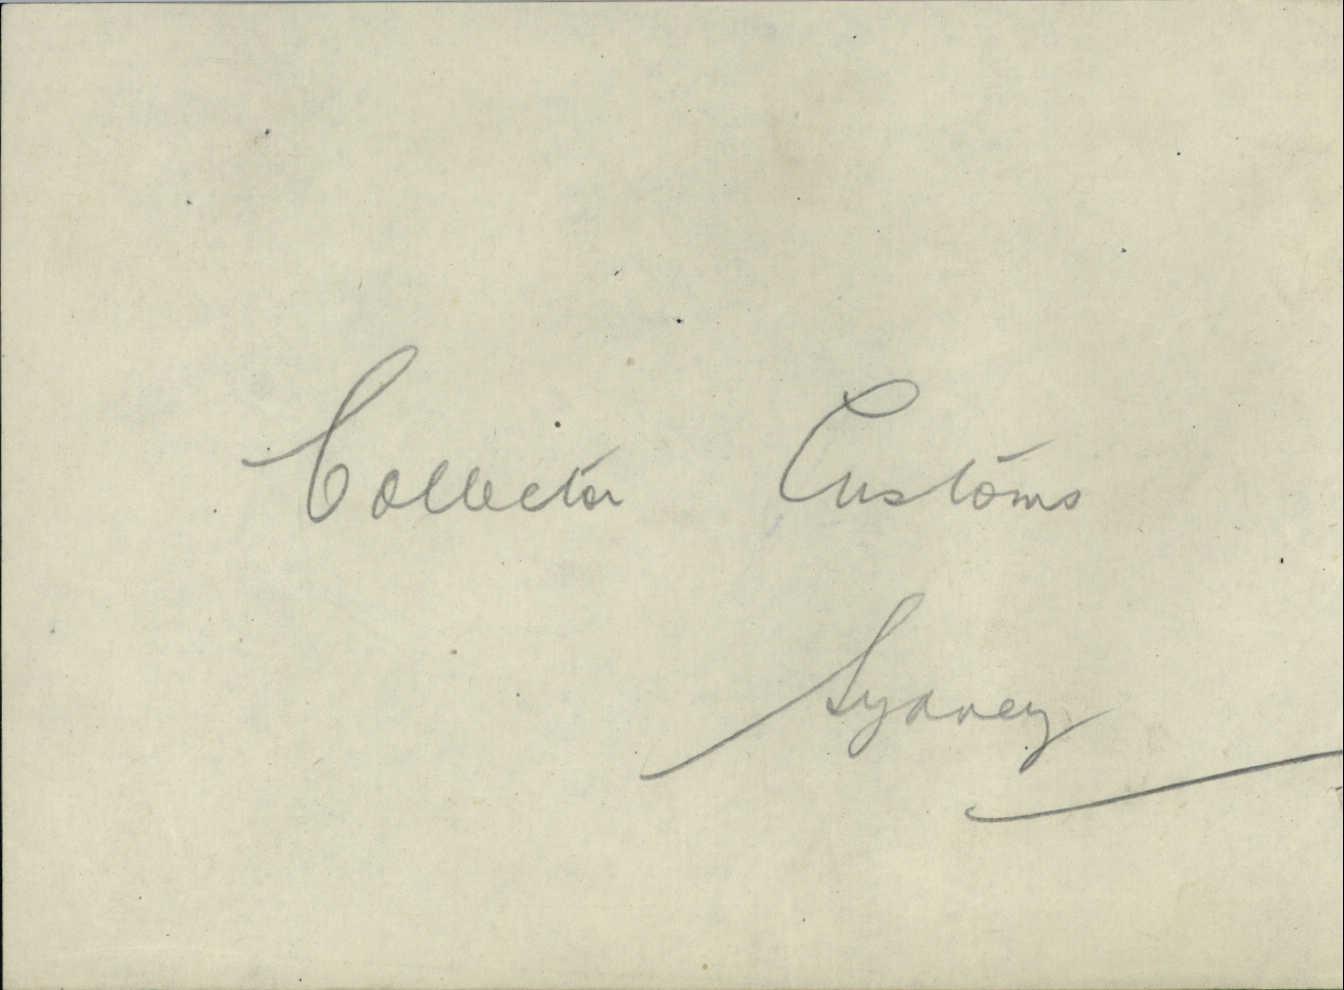 Collector Customs
Sydney